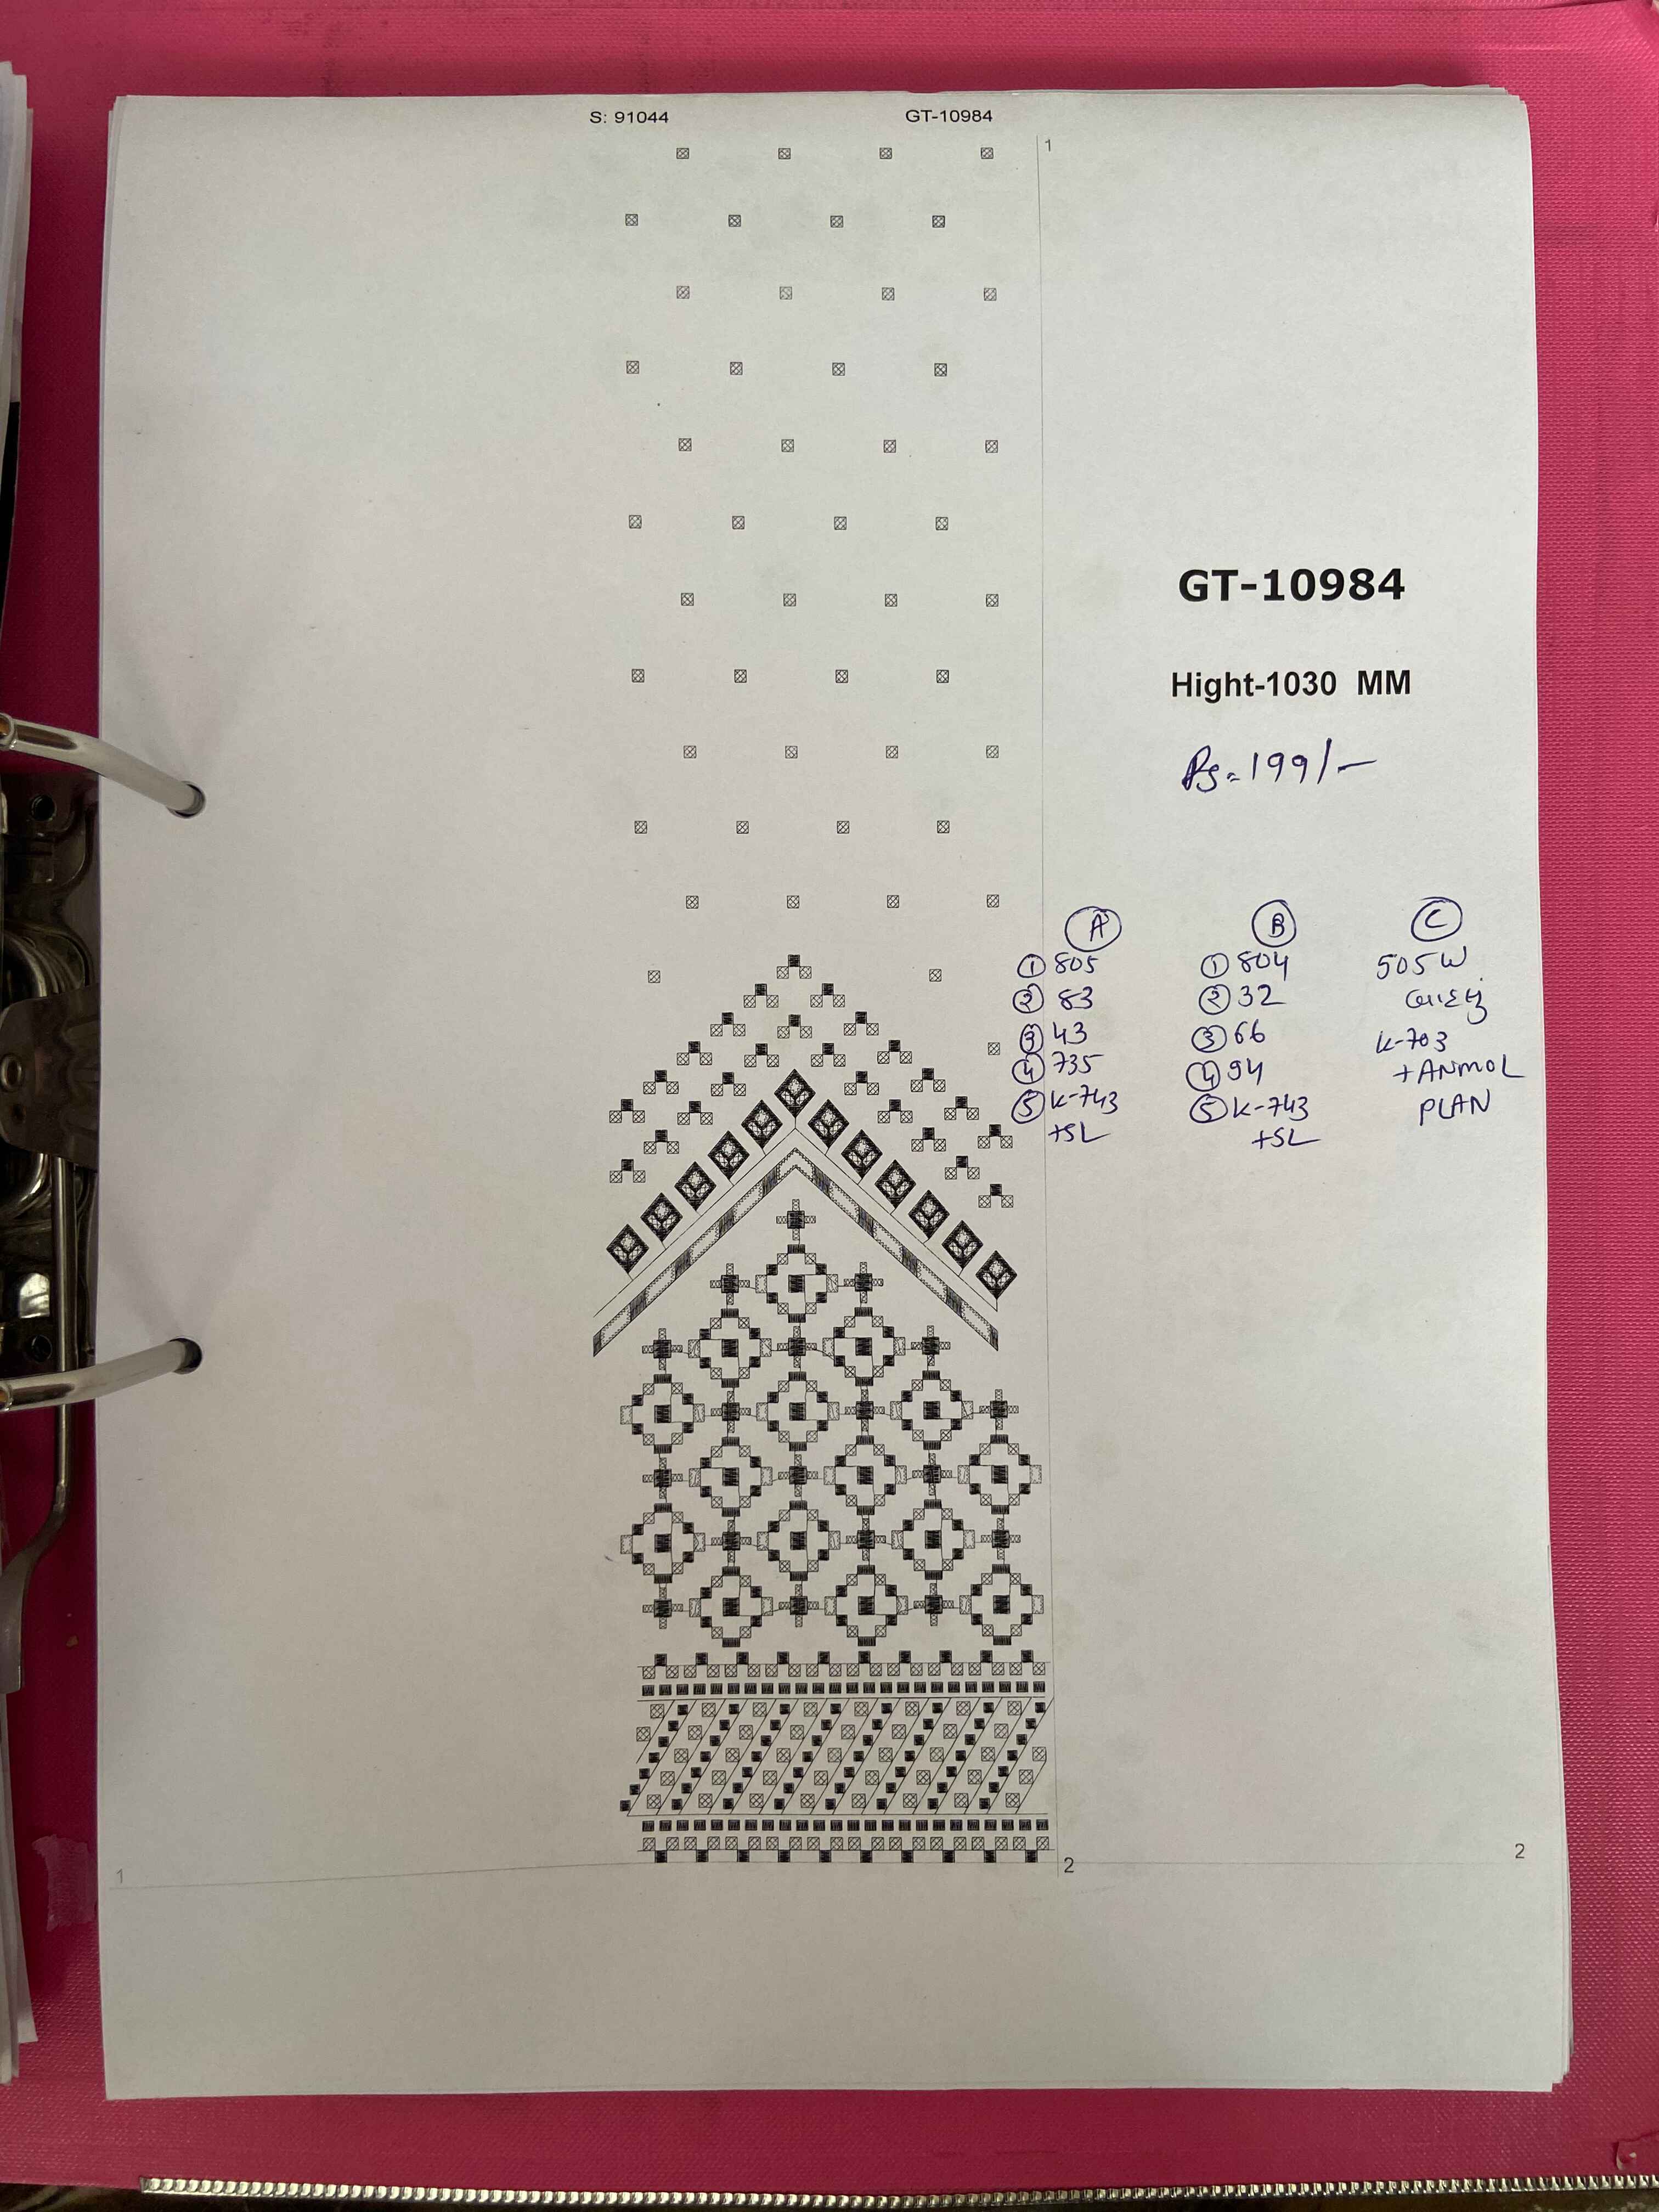 S: 91044 GT-10984
1
GT-10984
Hight-1030 MM
Rs=199/-
A B C
1 805
2 83
3 43
4 735
5 K-743
+SL
1 804
2 32
3 66
4 94
5 K-743
+SL
505W
K-703
+ANMOL
PLAN
1 2 2